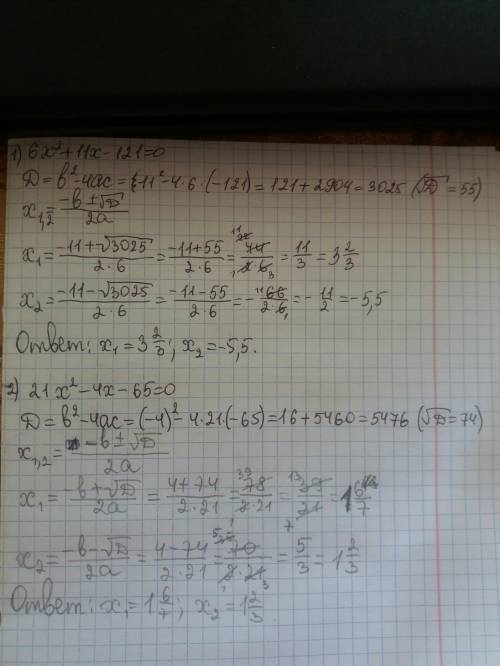 1) 6x²+11x-121=0
Д=в²-4ас=11²-4·6·(-121)=121+2904=3025 (√Д=55)
x₁,₂=(-в±√Д)/2а
x₁=(-11+√3025)/(2·6)=(-11+55)/(2·6)=44/(2·6)=11/3=3 2/3
x₂=(-11-√3025)/(2·6)=(-11-55)/(2·6)=-66/(2·6)=-11/2=-5,5
Ответ: x₁=3 2/3; x₂=-5,5.
2) 21x²-4x-65=0
Д=в²-4ас=(-4)²-4·21·(-65)=16+5460=5476 (√Д=74)
x₁,₂=(-в±√Д)/2а
x₁=(-в+√Д)/2а=(4+74)/(2·21)=78/(2·21)=39/21=1 6/7
x₂=(-в-√Д)/2а=(4-74)/(2·21)=70/(2·21)=5/3=1 2/3
Ответ: x₁=1 6/7; x₂=1 2/3.